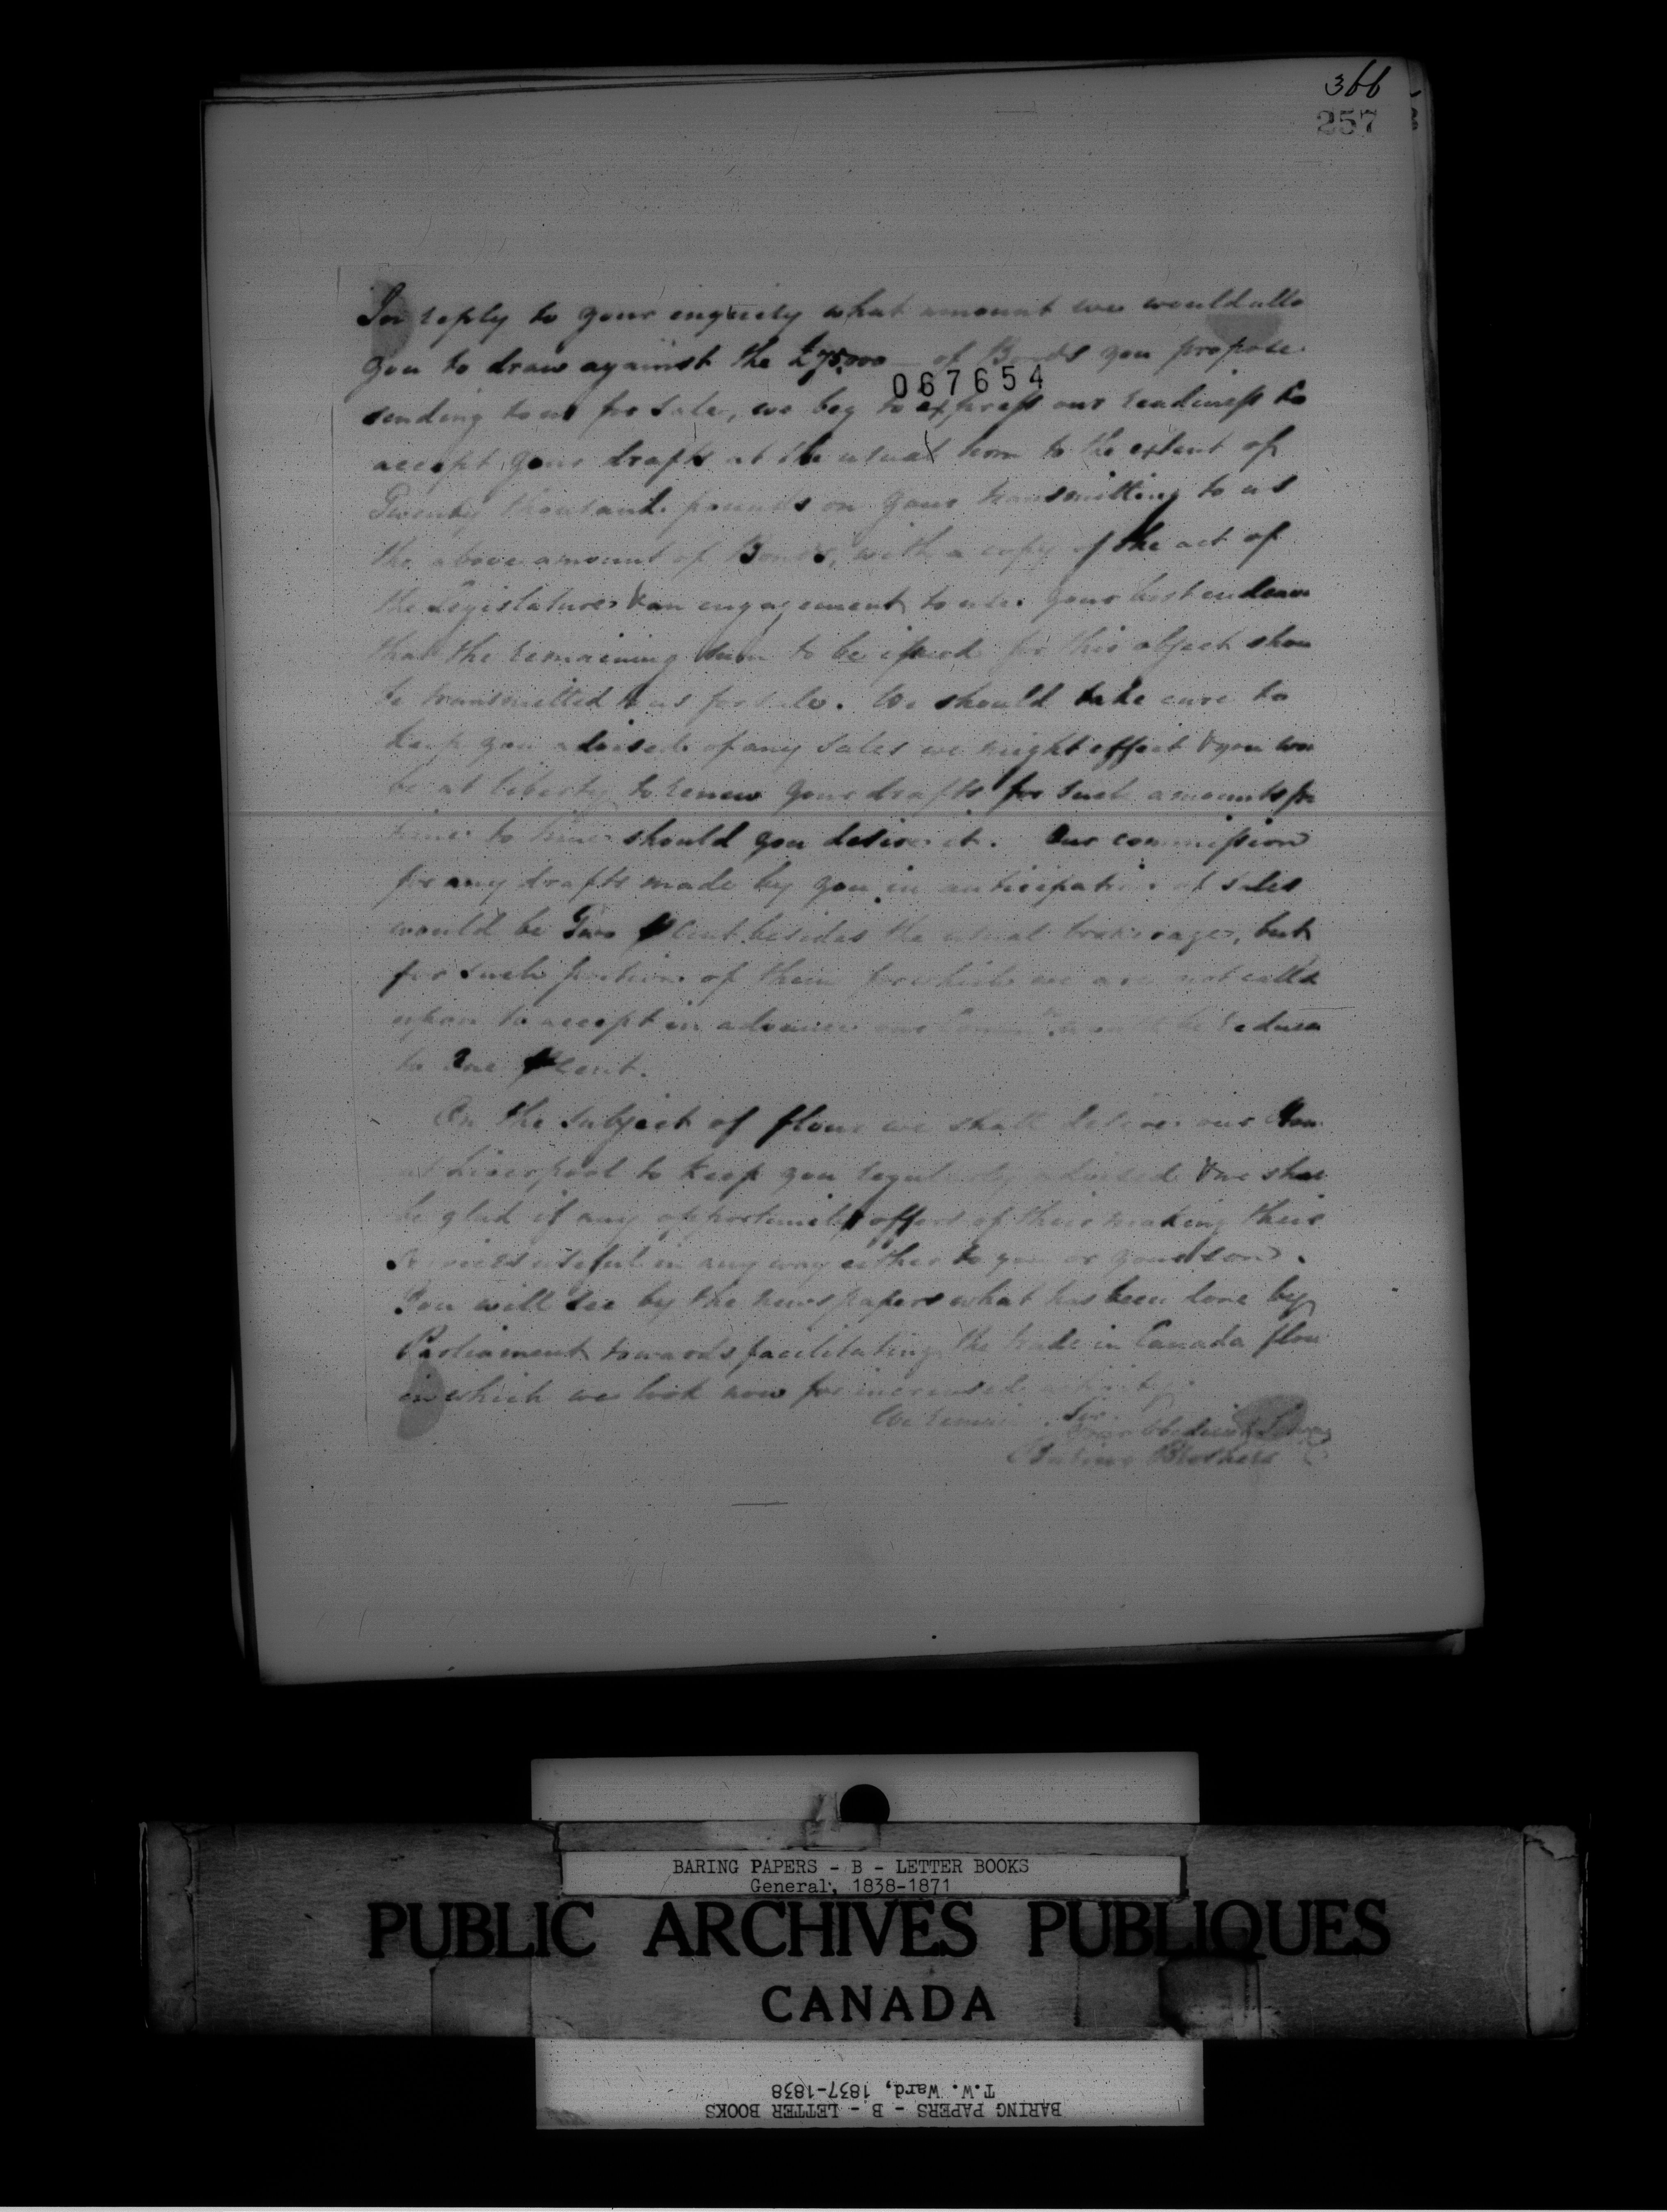 366
257
In reply to your inquiry what amount we would allo
you to draw against the £75,000 of Bonds you propose
067654
sending to us for sale, we beg to express our readiness to
accept your drafts at the usual term to the extent of
Twenty thousand pounds on your transmitting to us
the above amount of Bonds, with a copy of the act of
the Legislature & an engagement to use your best endeav
that the remaining sum to be issued for this object shou
be transmitted to us for sale. We should take care to
keep you advised of any sales we might effect & you wou
be at liberty to renew your drafts for such amounts fr
time to time should you desire it. Our commission
for any drafts made by you in anticipation of sales
would be Two p Cent besides the usual brokerage, but
for such portion of them for which we are not called
upon to accept in advance our would be reduced
to One p Cent.
On the subject of flour we shall desire our Hou
at Liverpool to keep you regularly advised & we shal
be glad if any opportunity offers of their making their
services useful in any way either to you or your son.
You will see by the newspapers what has been done by
Parliament towards facilitating the trade in Canada flou
in which we look now for increased
We remain, Sir,
Your Obedient
Baring Brothers
BARING PAPERS - B - LETTER BOOKS
General, 1838-1871
PUBLIC ARCHIVES PUBLIQUES
CANADA
T.W. Ward, 1837-1838
BARING PAPERS - B - LETTER BOOKS